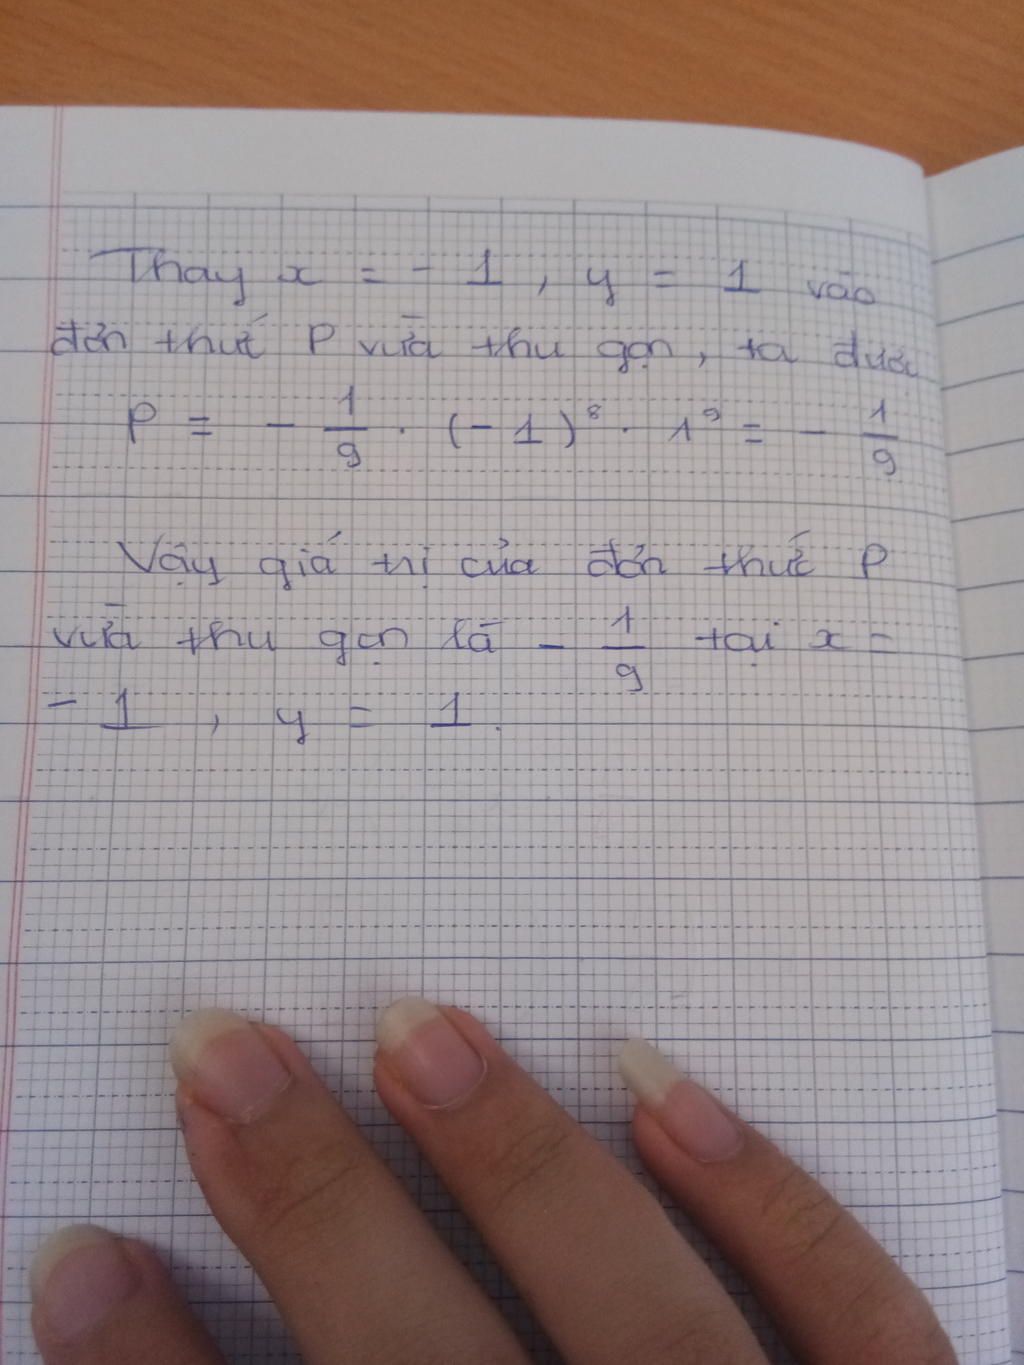 Thay x = - 1 , y = 1 vào
đơn thức P vừa thu gọn, ta được
P = - 1/9 . (- 1)⁸ . 1⁹ = - 1/9
Vậy giá trị của đơn thức P
vừa thu gọn là - 1/9 tại x =
- 1 , y = 1.